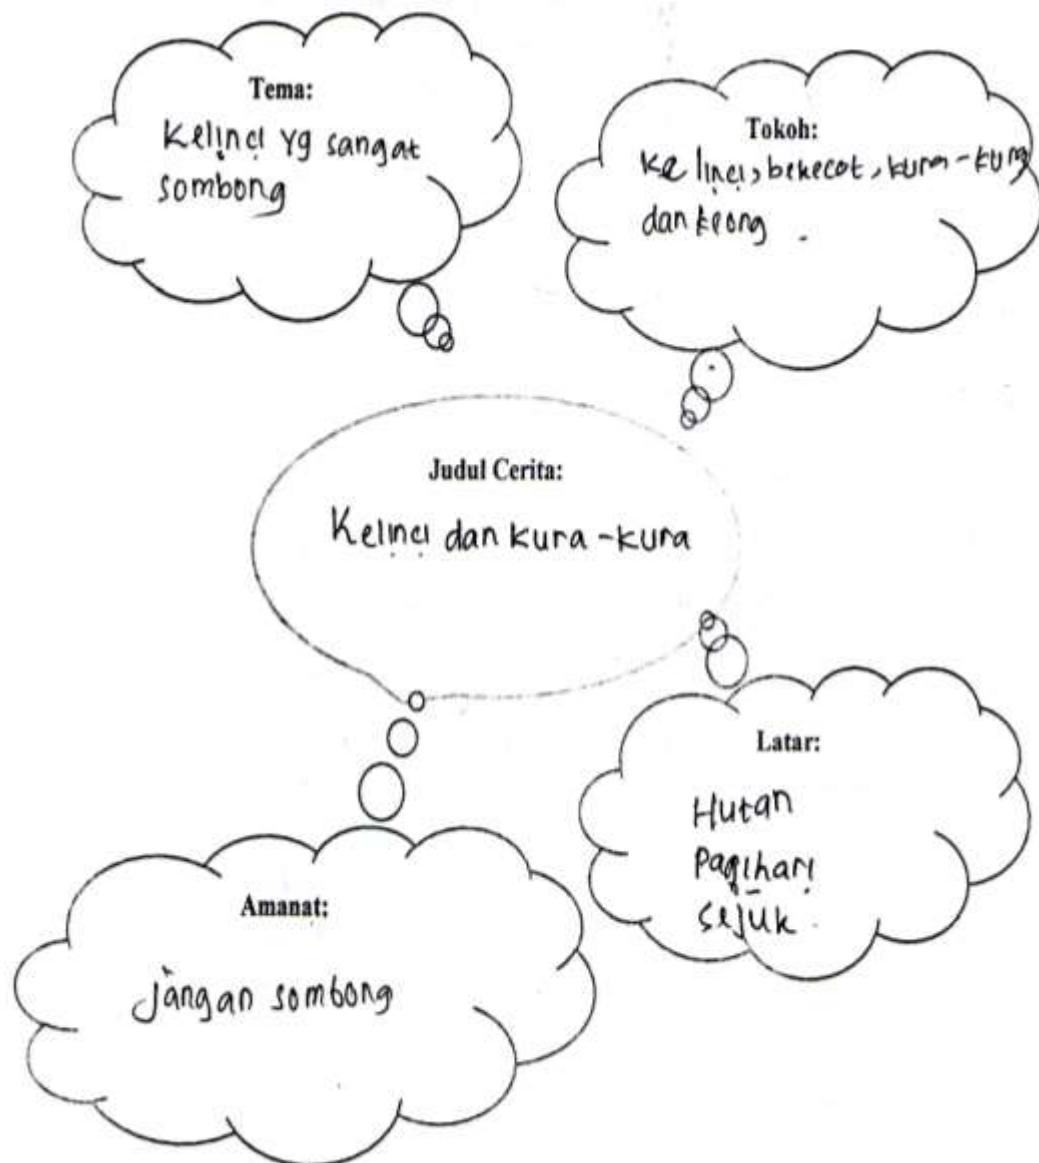 Tema:
Kelinci yg sangat
sombong
Tokoh:
Kelinci, bekecot, kura-kura
dan keong .
Judul Cerita:
Kelinci dan kura-kura
Latar:
Hutan
Pagi hari
sejuk .
Amanat:
jangan sombong